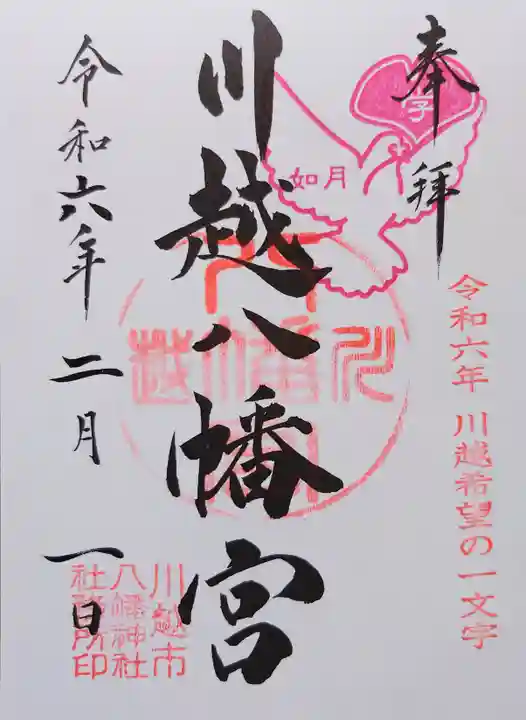 奉拝
字
如月
令和六年 川越希望の一文字
川越八幡宮
川越八幡
川越市
八幡神社
社務所印
令和六年 二月 一日